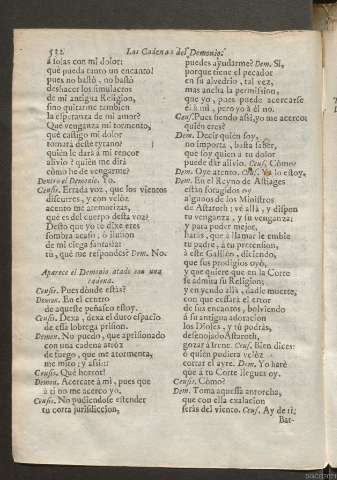 522 Las Cadenas del Demonio.
à solas con mi dolor:
què pueda tanto un encanto!
pues no bastò, no bastò
deshacer los simulacros
de mi antigua Religion,
sino quitarme tambien
la esperanza de mi amor?
Que venganza mi tormento,
què castigo mi dolor
tomarà deste tyrano?
quièn le darà à mi rencor
alivio? quièn me dirà
còmo he de vengarme?
Dentro el Demonio. Yo.
Ceusis. Errada voz, que los vientos
discurres, y con velòz
acento me atemorizas,
què es del cuerpo desta voz?
Desto que yo te dixe eres
sombra acaso, ò ilusion
de mi ciega fantasia:
tu, què me respondes? Dem. No.
Aparece el Demonio atado con una
cadena.
Ceusis. Pues dònde estàs?
Demon. En el centro
de aqueste peñasco estoy.
Ceusis. Dexa, dexa el duro espacio
de essa lobrega prision.
Demon. No puedo, que aprisionado
con una cadena atròz
de fuego, que me atormenta,
me miro; y assi:
Ceusis. Què horror!
Demon. Acercate à mi, pues que
à ti no me acerco yo.
Ceusis. No pudiendose estender
tu corta jurisdiccion,
puedes ayudarme? Dem. Sì,
porque tiene el pecador
en su alvedrio, tal vez,
mas ancha la permission,
que yo, pues puede acercarse
èl à mi, pero yo à èl no.
Ceus. Pues siendo assi, yo me acerco:
quièn eres?
Dem. Decir quièn soy,
no importa, basta saber,
que soy quien à tu dolor
puede dar alivio. Ceus. Còmo?
Dem. Oye atento. Ceus. Ya lo estoy.
Dem. En el Reyno de Astiages
estàn foragidos oy
algunos de los Ministros
de Astaroth; vè allà, y dispon
tu venganza, y su venganza;
y para poder mejor,
haràs, que à llamar le embie
tu padre, à tu pretension,
à este Gassien, diciendo,
que sus prodigios oyò,
y que quiere que en la Corte
se admita su Religion;
y en yendo allà, dadle muerte,
con que cessarà el error
de sus encantos, bolviendo
à su antigua adoracion
los Dioses, y tù podràs,
desenojado Astaroth,
gozar à Irene. Ceus. Bien dices:
ò quièn pudiera velòz
cortar el ayre. Dem. Yo harè
que à tu Corte llegues oy.
Ceusis. Còmo?
Dem. Toma aquessa antorcha,
que con ella exalacion
seràs del viento. Ceus. Ay de ti;
Bar-